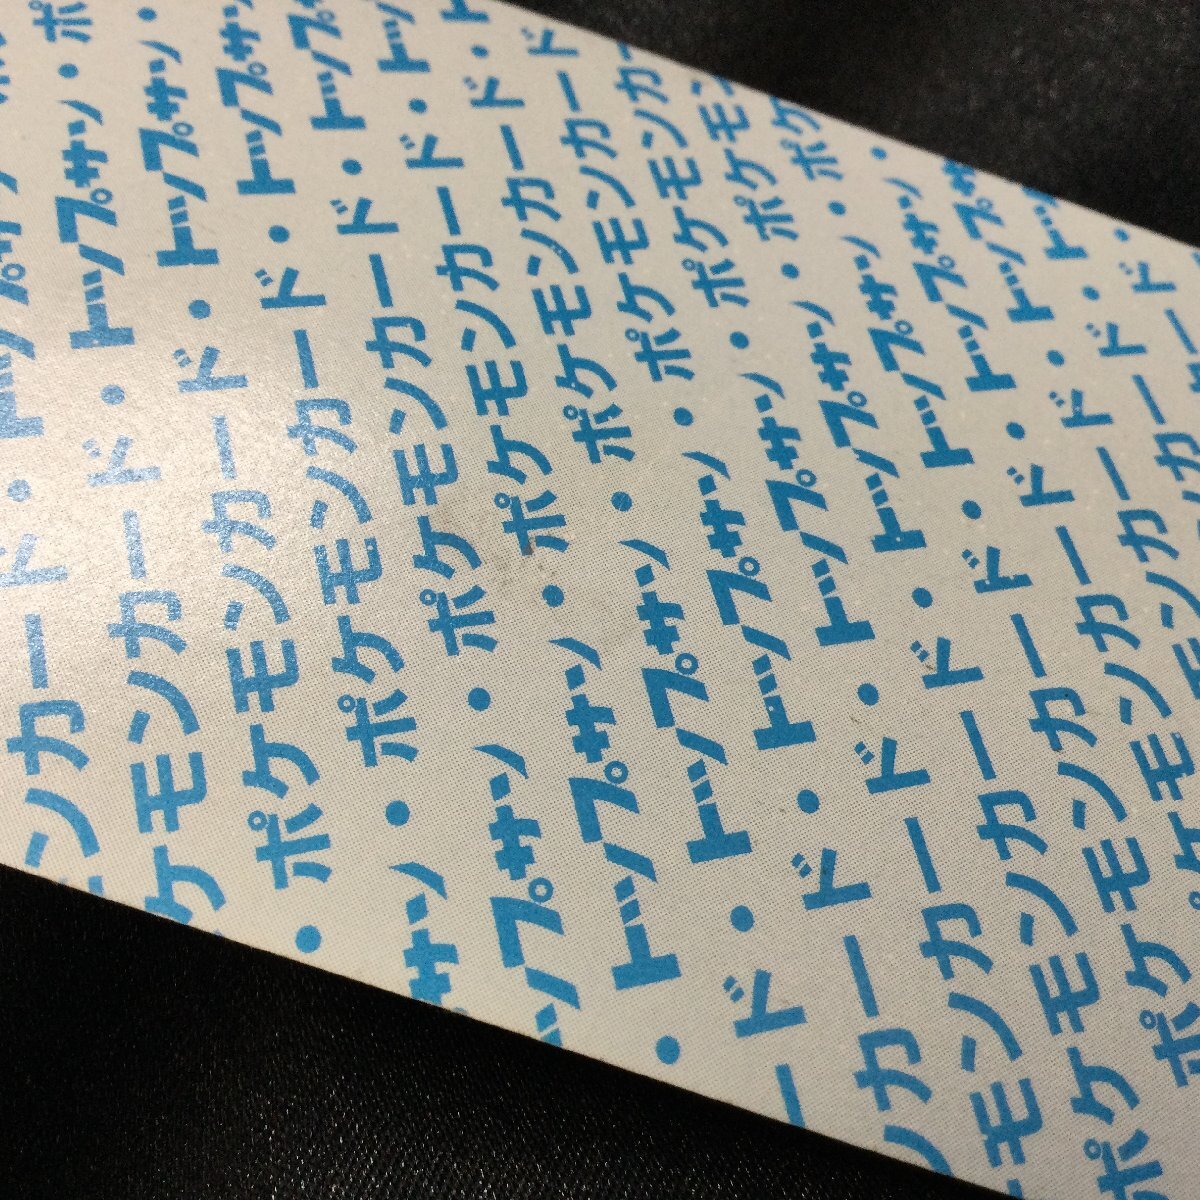 ンカード・トップサン
ケモンカード・トップサン・ポ
・ポケモンカード・トップサン・
サン・ポケモンカード・トップサン
ップサン・ポケモンカード・トップ
・トップサン・ポケモンカード・ト
ード・トップサン・ポケモンカード・ト
ンカード・トップサン・ポケモンカード
モンカード・トップサン・ポケモンカ
ポケモンカード・トップサン・ポケモ
ポケモンカード・トップサン・ポケ
モンカード・トップサン・
ンカード・トップサ
カード・ト
ード・